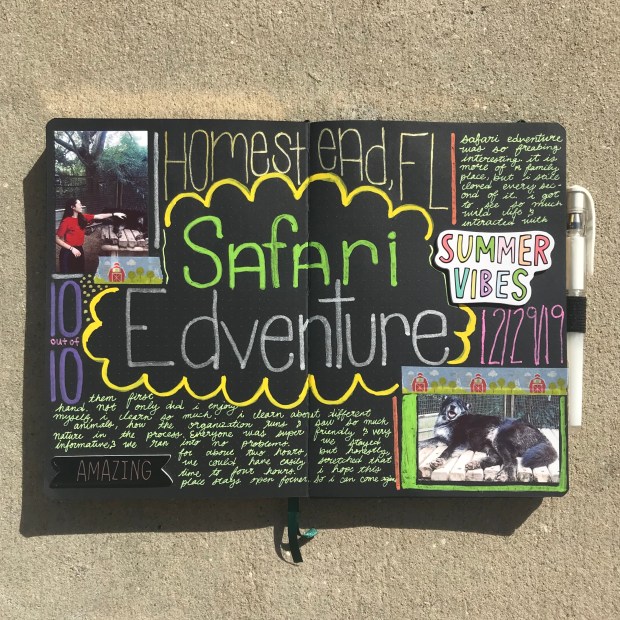 Homestead, FL
Safari
Edventure
safari edventure
was so freaking
interesting. it is
more of a family
place, but i still
loved every sec-
ond of it. i got
to see so much
wild life &
interacted with
SUMMER
VIBES
12/29/19
10
out of
10
them first
hand. not only did i enjoy
myself, i learn so much. i learn about different
animals, how the organization runs & saw so much
nature in the process. Everyone was super friendly & very
informative & we ran into no problems. we stayed
for about two hours, but honestly,
we could have easily stretched that
time to four hours. i hope this
place stays open forever so i can come again
AMAZING